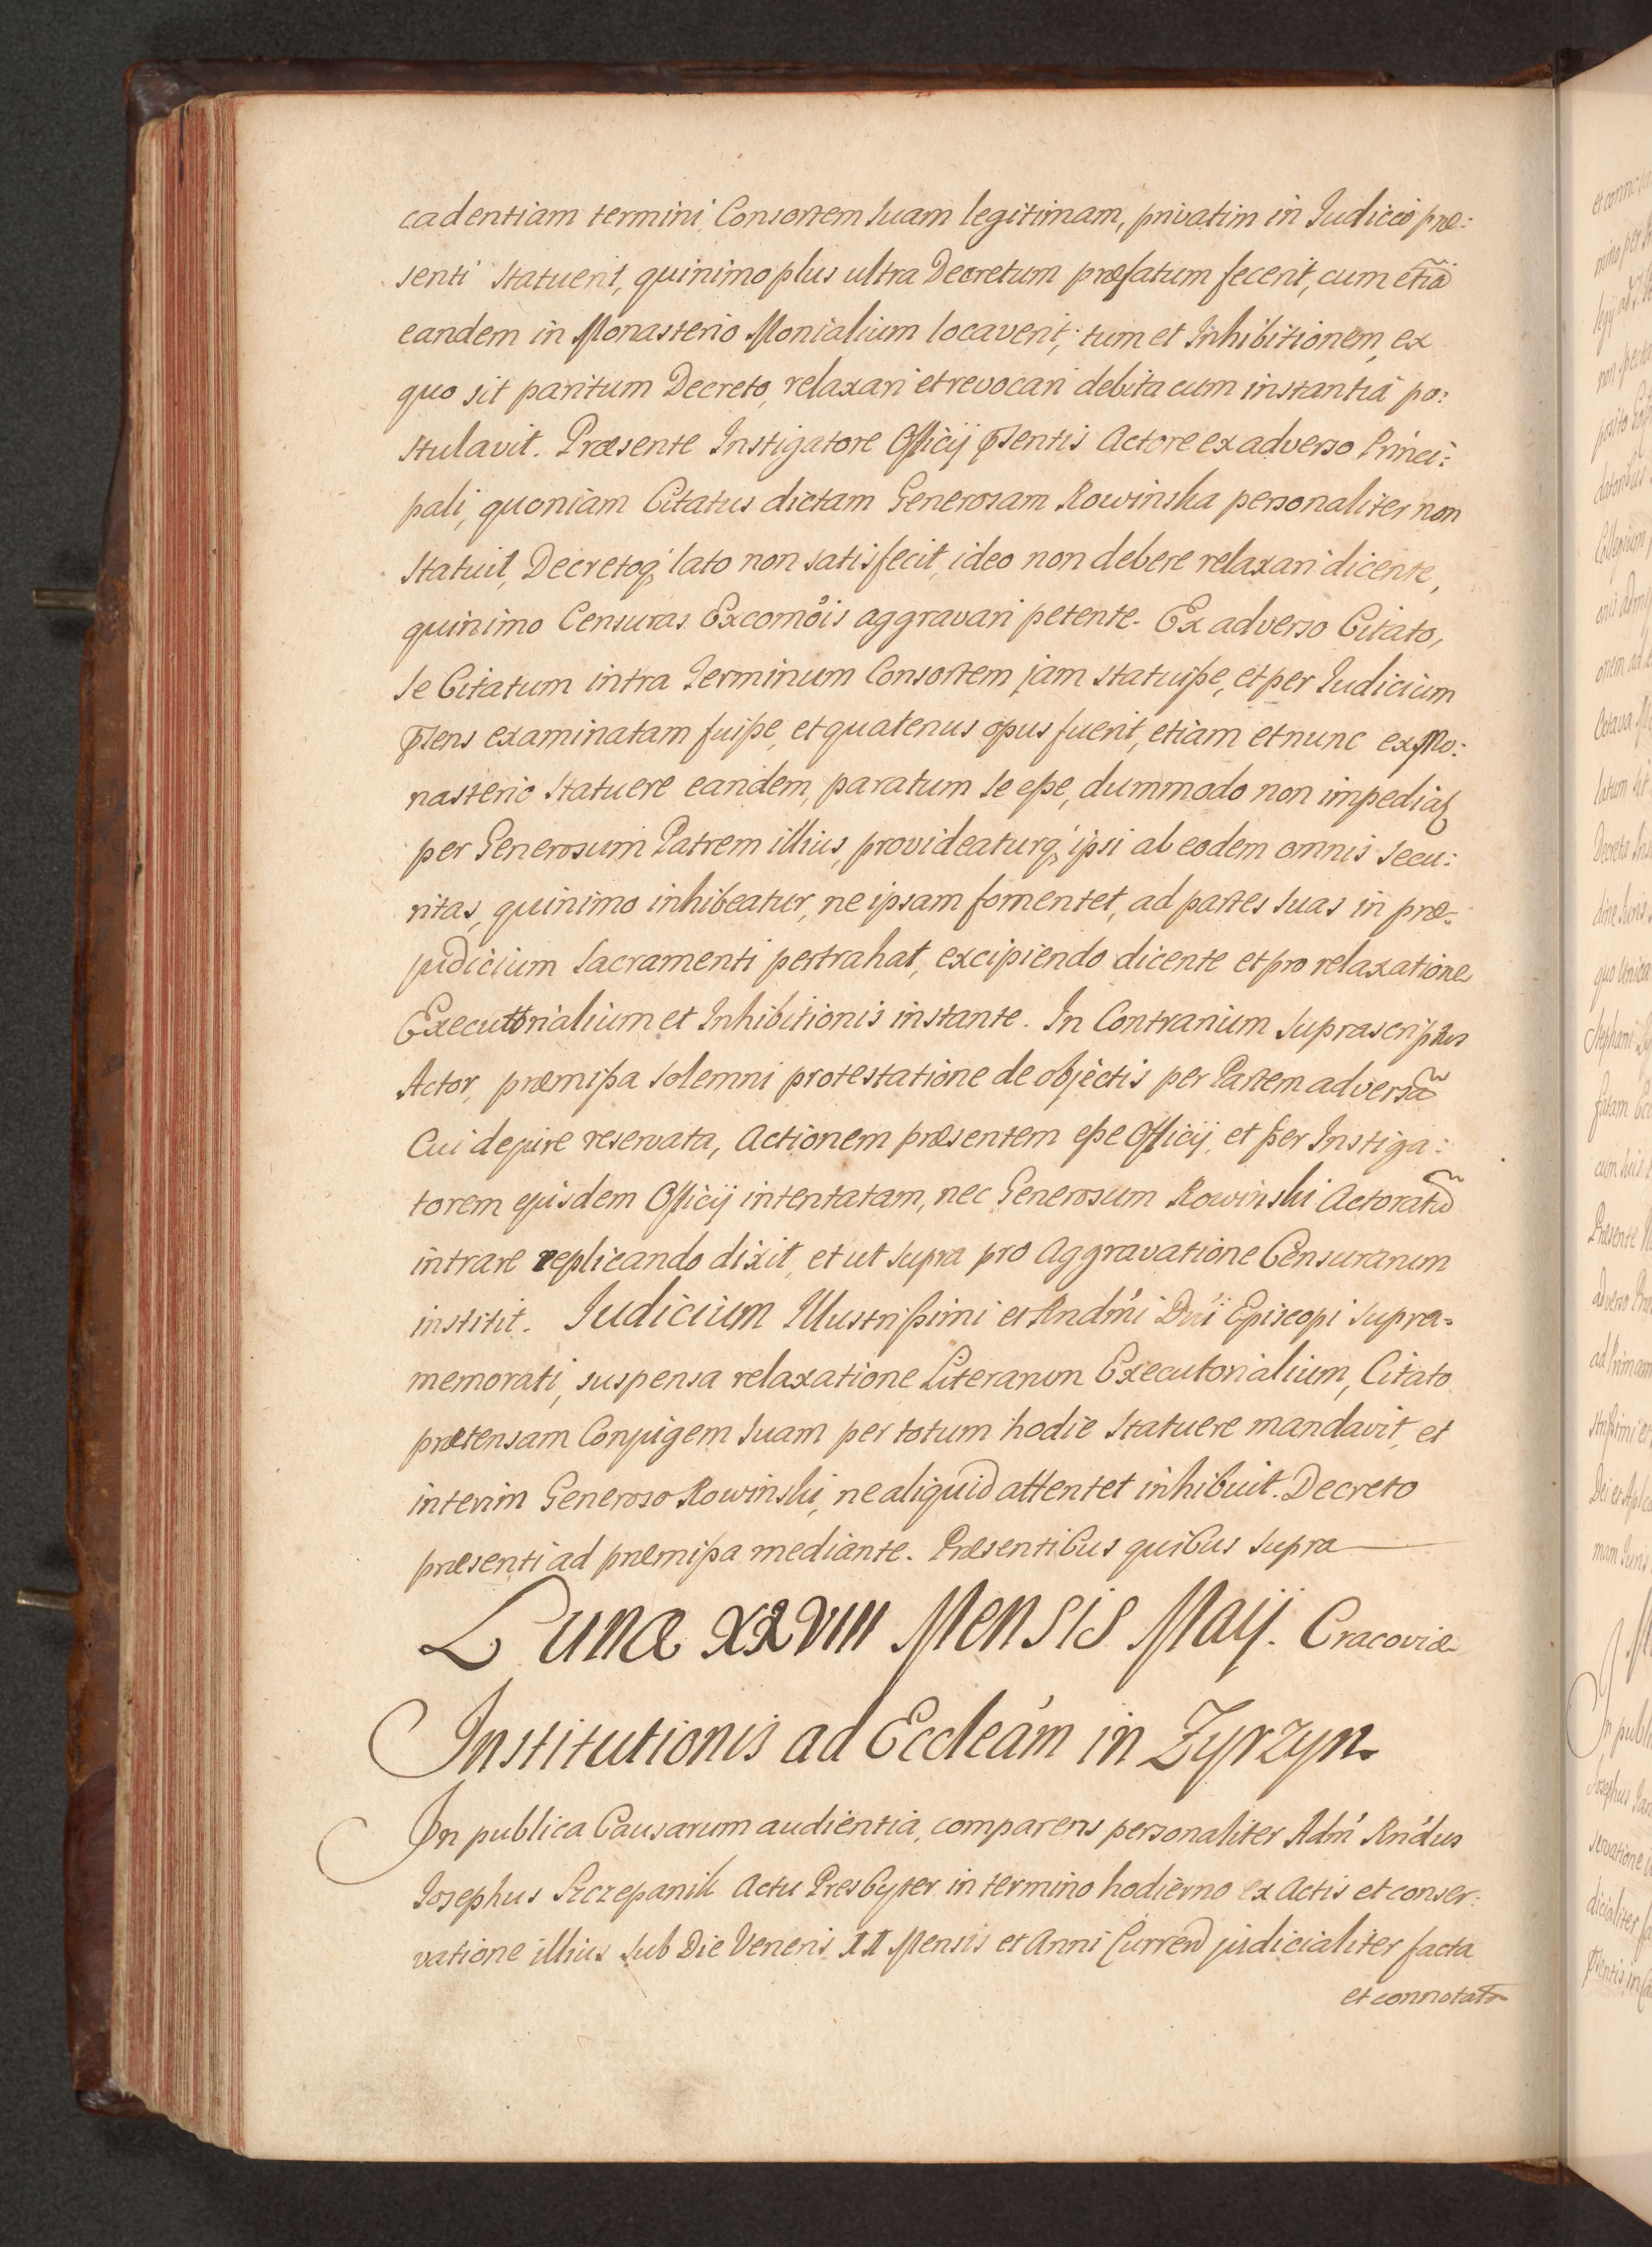 cadentiam termini Consortem suam legitimam, privatim in Judicio præ:
senti statuerit, quinimo plus ultra Decretum præfatum fecerit, cum etiã
eandem in Monasterio Monialium locaverit; tum et Inhibitionem, ex
quo sit paritum Decreto, relaxari et revocari debita cum instantia po:
stulavit. Præsente Instigatore Officij pñtis Actore ex adverso Princi:
pali, quoniam Citatus dictam Generosam Rowinska personaliter non
statuit, Decretoq; lato non satisfecit, ideo non debere relaxari dicente,
quinimo Censuras Excomõis aggravari petente. Ex adverso Citato,
se Citatum intra Terminum Consortem jam statuiße, et per Judicium
pñens examinatam fuiße, et quatenus opus fuerit, etiam et nunc ex Mo:
nasterio statuere eandem, paratum se eße, dummodo non impediať
per Generosum Patrem illius, provideaturq; ipsi ab eodem omnis secu:
ritas, quinimo inhibeatur, ne ipsam fomentet, ad partes suas in præ:
judicium Sacramenti pertrahat, excipiendo dicente et pro relaxatione
Executorialium et Inhibitionis instante. In Contrarium suprascriptus
Actor, præmißa solemni protestatione de objectis per Partem adversã
Cui de jure reservata, Actionem præsentem eße Officij, et per Instiga:
torem ejusdem Officij intentatam, nec Generosum Rowinski Actoratũ
intrare replicando dixit, et ut supra pro Aggravatione Censurarum
institit. Judicium Illustrißimi et Rndmi Dni Episcopi supra=
memorati, suspensa relaxatione Literarum Executorialium, Citato
prætensam Conjugem suam per totum hodie statuere mandavit, et
interim Generoso Rowinski, ne aliquid attentet inhibuit. Decreto
præsenti ad præmißa mediante. Præsentibus quibus supra
Lunæ XXVIII Mensis Maij. Cracoviæ
Institutionis ad Eccleám in Zyrzyn.
In publica Causarum audientia, comparens personaliter Adm̃ Rńdus
Josephus Szczepanik Actu Presbyter in termino hodierno ex Actis et conser:
vatione illius sub Die Veneris XI Mensis et Anni Curreñ judicialiter facta
et connotata